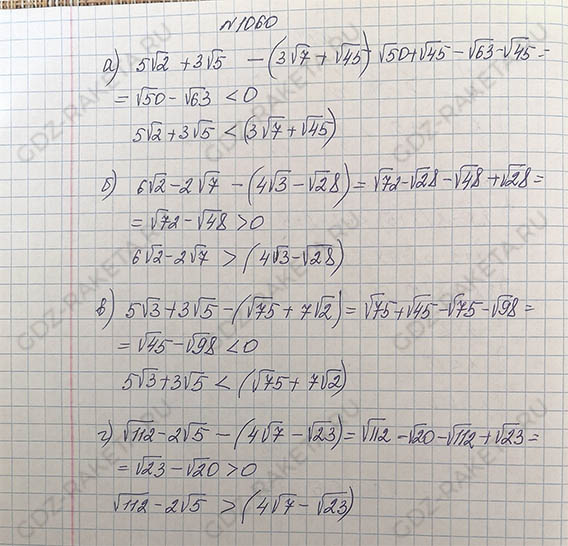 №1060
а) 5√2 + 3√5 - (3√7 + √45) √50+√45-√63-√45=
= √50 - √63 < 0
5√2+3√5 < (3√7+√45)
б) 6√2-2√7 - (4√3 - √28) = √72-√28-√48+√28=
= √72 - √48 > 0
6√2-2√7 > (4√3-√28)
в) 5√3+3√5 - (√75 + 7√2) = √75+√45-√75-√98=
= √45 - √98 < 0
5√3+3√5 < (√75 + 7√2)
г) √112 - 2√5 - (4√7 - √23) = √112 - √20 - √112 + √23=
= √23 - √20 > 0
√112 - 2√5 > (4√7 - √23)
GDZ-RAKETA.RU